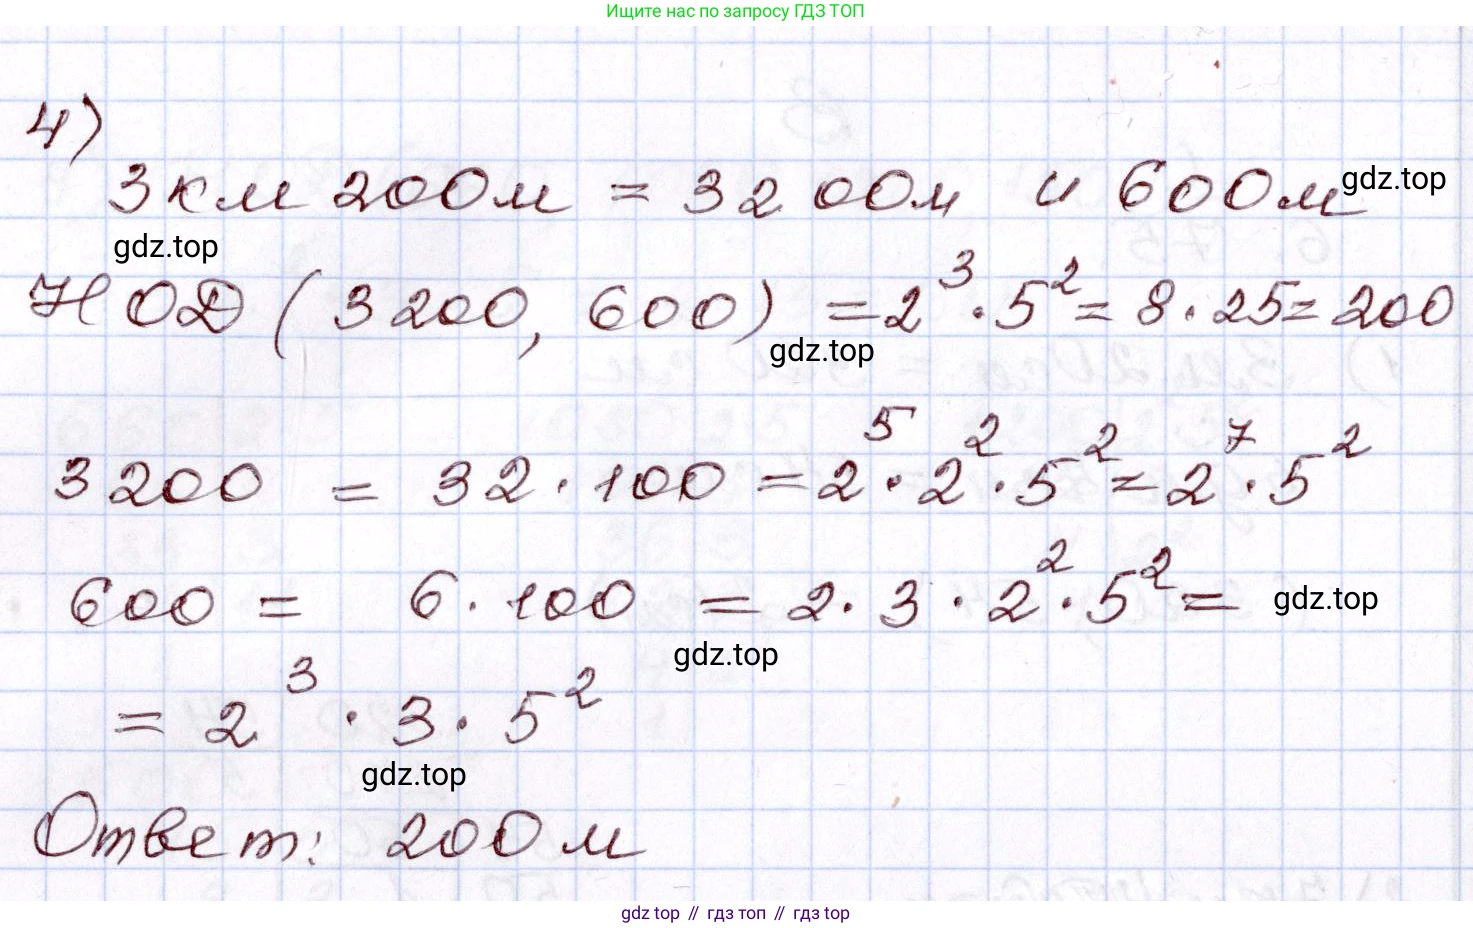 Ищите нас по запросу ГДЗ ТОП
4)
3 км 200 м = 3200 м и 600 м
gdz.top
gdz.top
НОД (3200, 600) = 2³ · 5² = 8 · 25 = 200
gdz.top
3200 = 32 · 100 = 2⁵ · 2² · 5² = 2⁷ · 5²
600 = 6 · 100 = 2 · 3 · 2² · 5² =
gdz.top
gdz.top
= 2³ · 3 · 5²
gdz.top
Ответ: 200 м
gdz top // гдз топ // гдз top